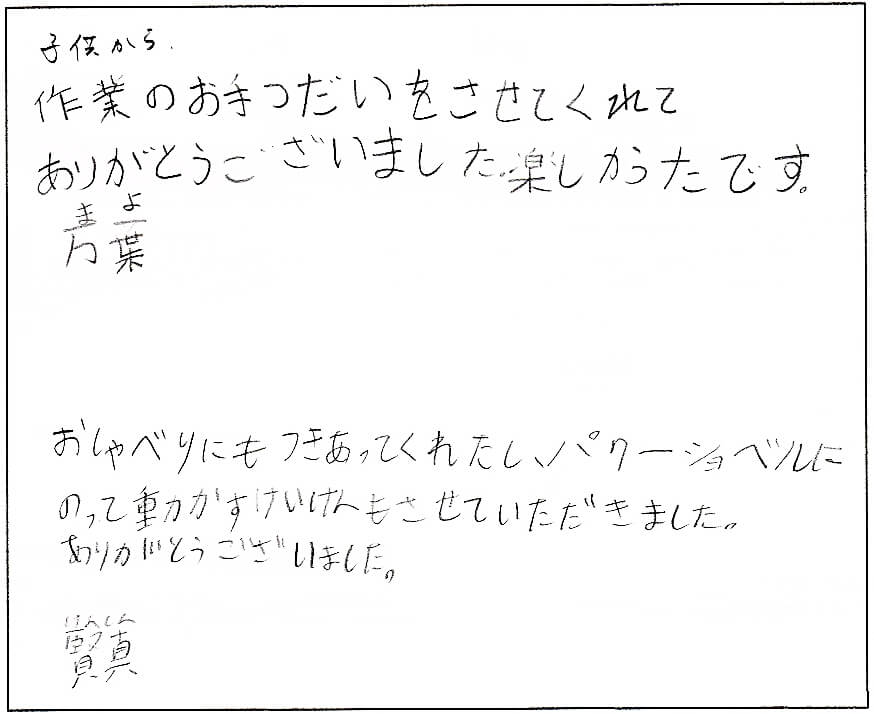 子供から.
作業のお手つだいをさせてくれて
ありがとうございました。楽しかったです。
まよ
万葉
おしゃべりにもつきあってくれたし、パワーショベルに
のって動かすけいけんもさせていただきました。
ありがとうございました。
けんしん
賢真